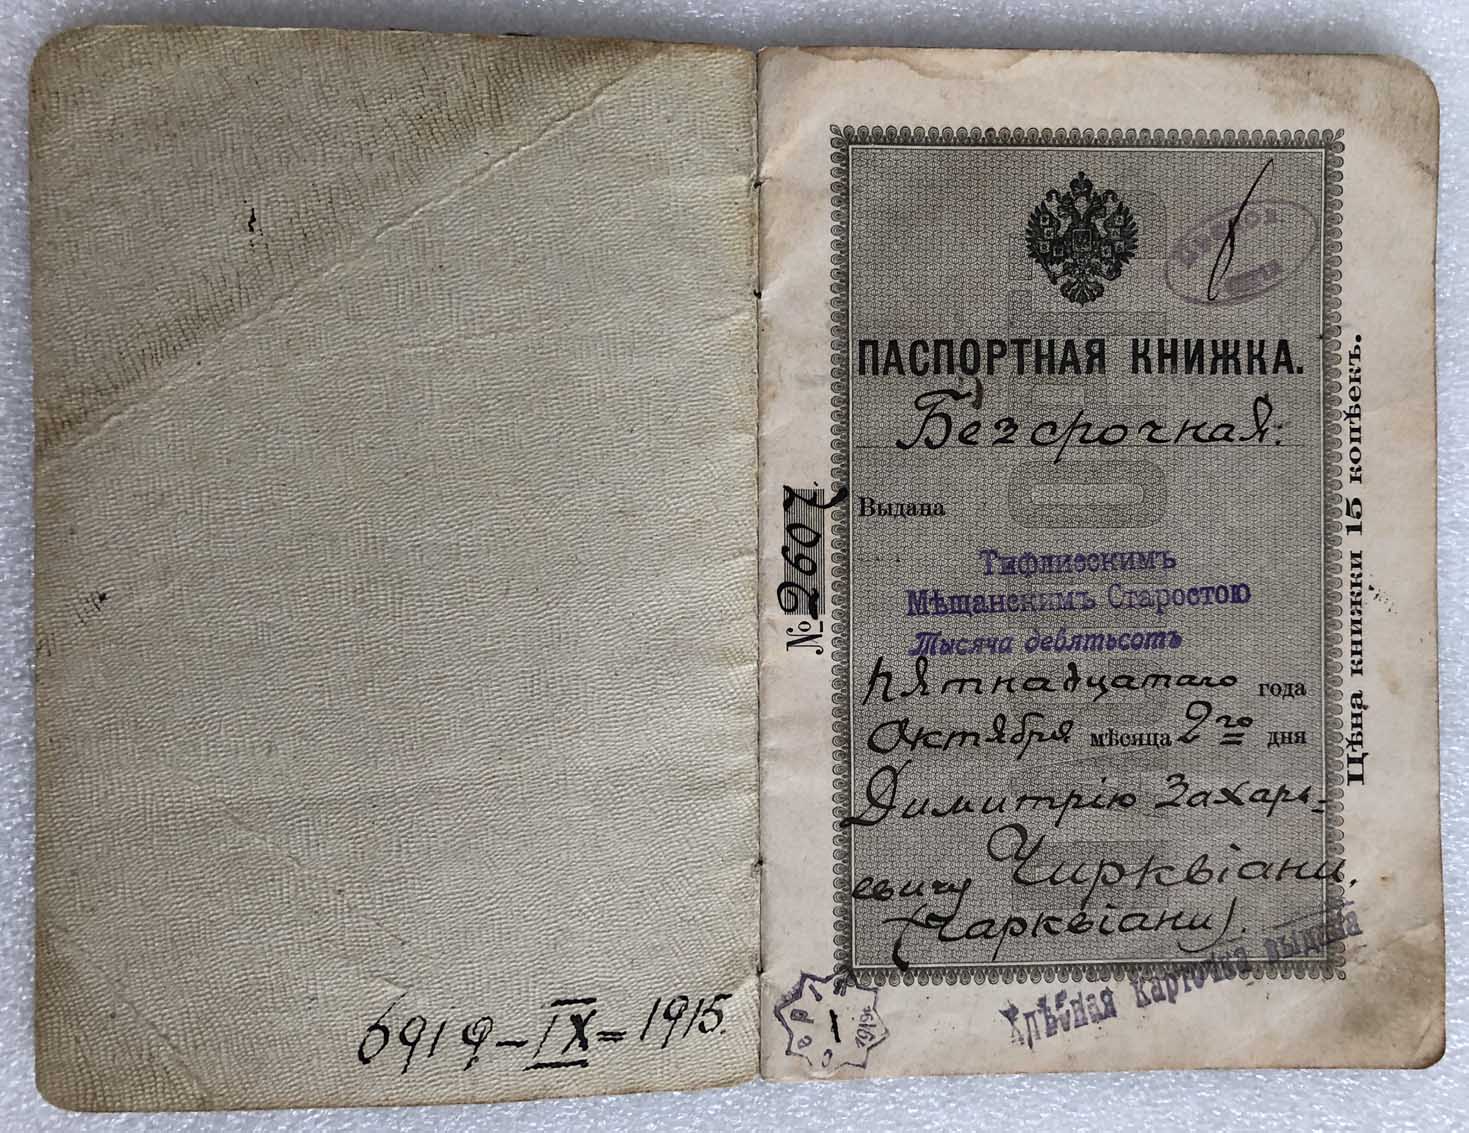 6919 – IX = 1915.
ПАСПОРТНАЯ КНИЖКА.
Безсрочная:
Выдана
Тифлисскимъ
Мѣщанскимъ Старостою
Тысяча девятьсотъ
пятнадцатаго года
Октября мѣсяца 2го дня
Димитрію Захарь-
евичу Чирквіани.
(Чарквіани).
№ 2607.
Цѣна книжки 15 копѣекъ.
Хлѣбная карточка выдана